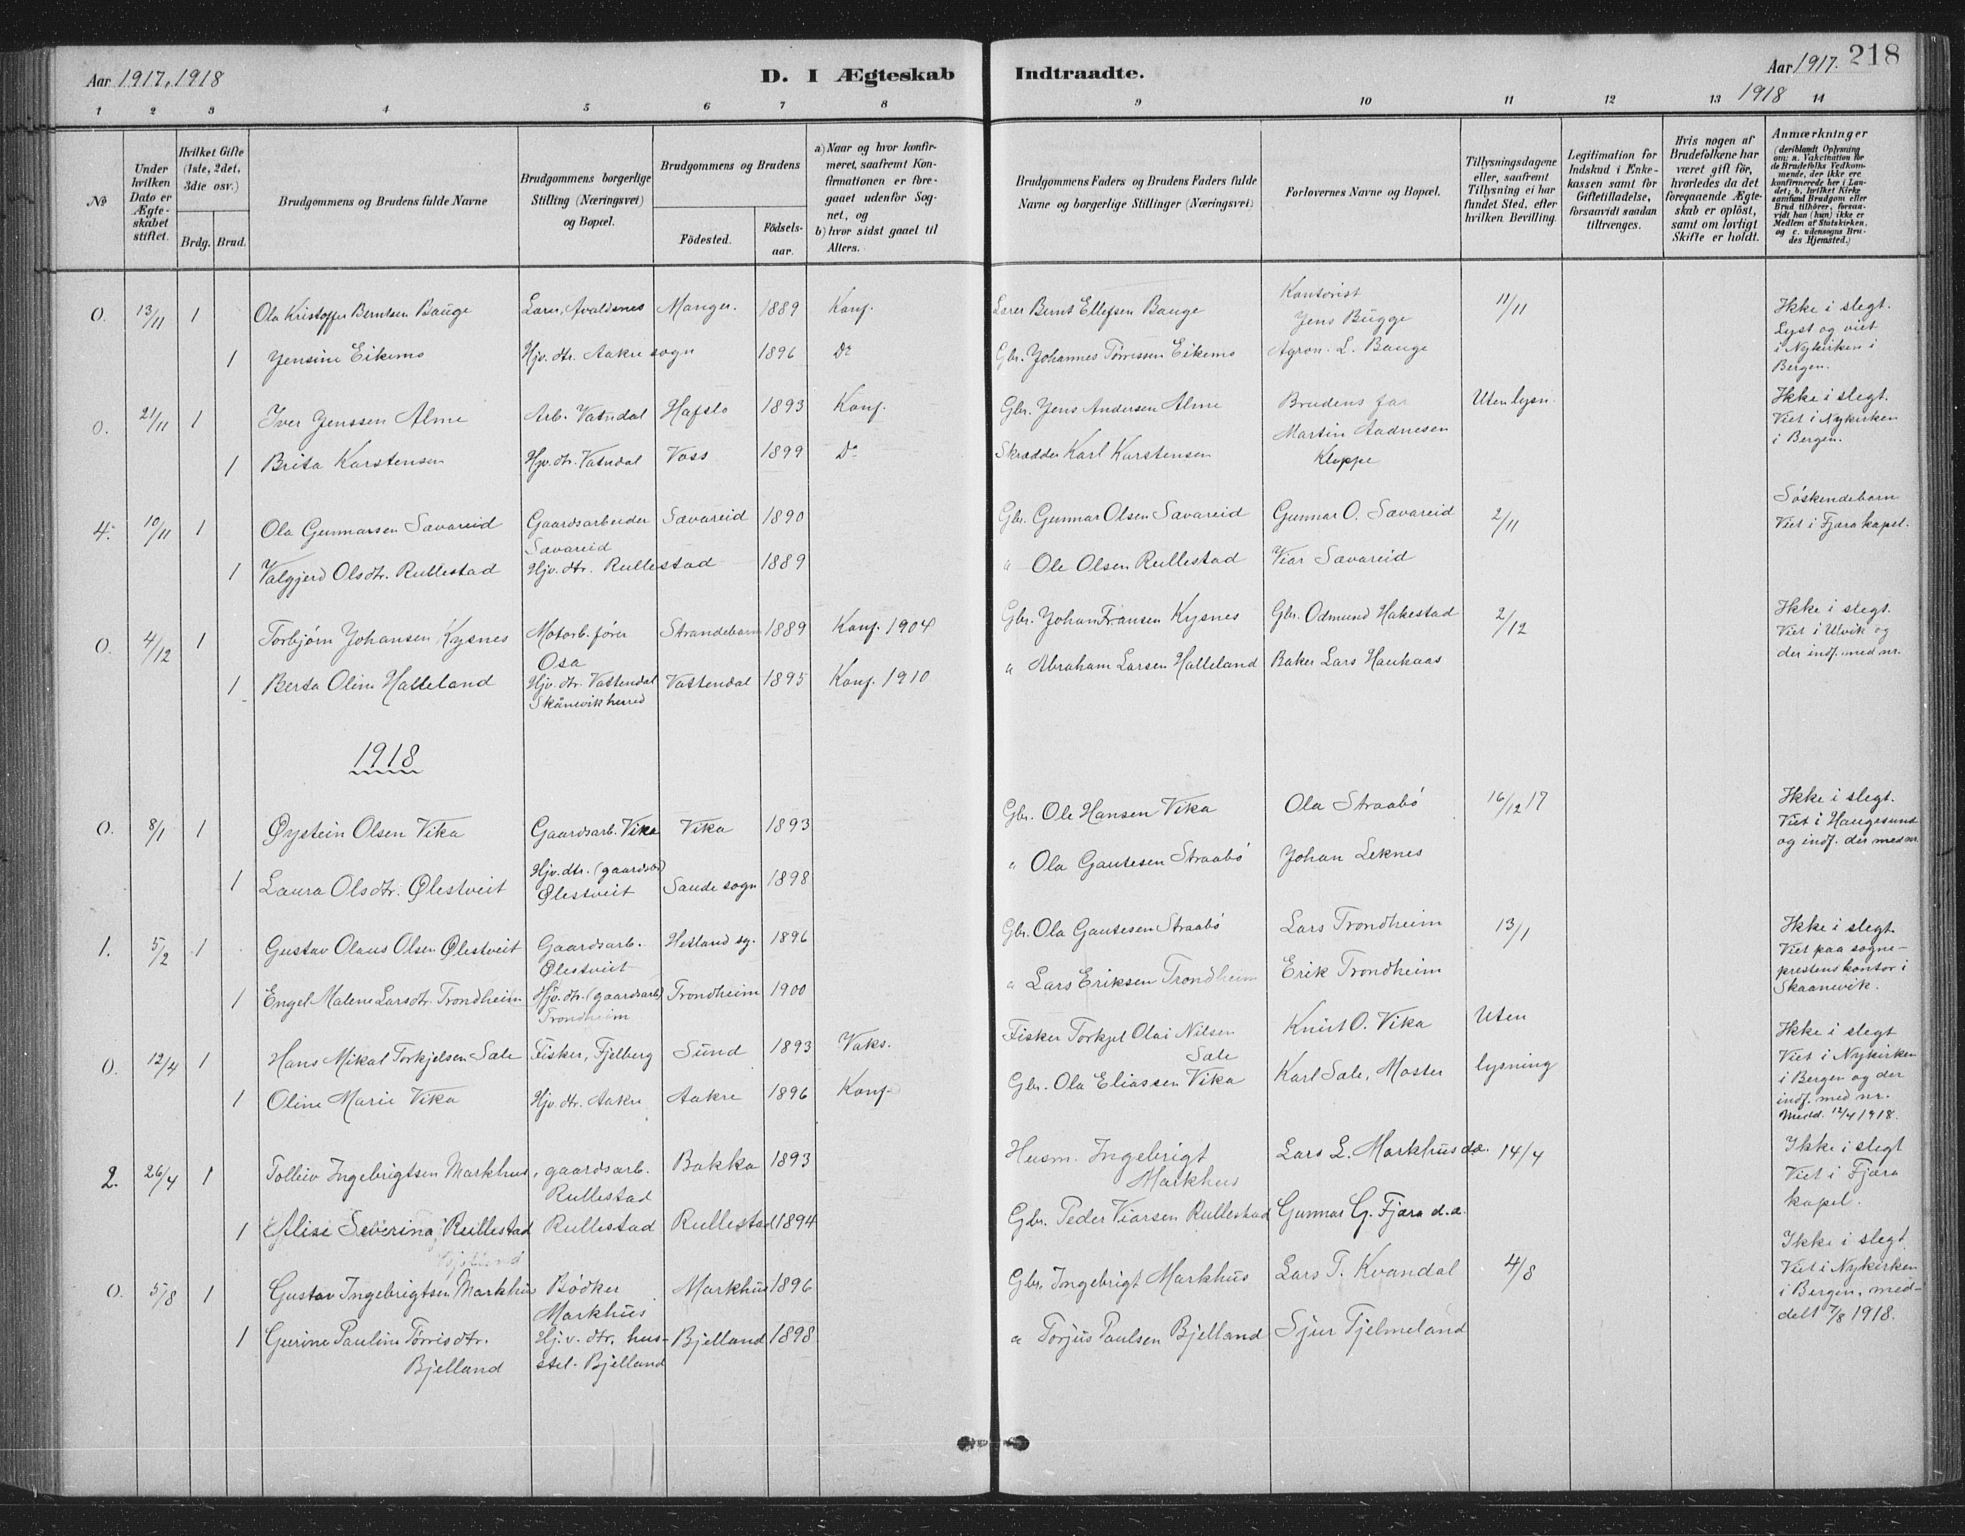 Aar 1917, 1918
D. I Ægteskab
Indtraadte.
Aar 1917. 218
1918
1 2 3 4 5 6 7 8 9 10 11 12 13 14
No
Under hvilken Dato er Ægteskabet stiftet.
Hvilket Gifte (1ste, 2det, 3die osv.)
Brdg. Brud.
Brudgommens og Brudens fulde Navne
Brudgommens borgerlige Stilling (Næringsvei) og Bopæl.
Brudgommens og Brudens
Födested.
Födselsaar.
a) Naar og hvor konfirmeret, saafremt Konfirmationen er foregaaet udenfor Sognet, og
b) hvor sidst gaaet til Alters.
Brudgommens Faders og Brudens Faders fulde Navne og borgerlige Stillinger (Næringsvei)
Forlovernes Navne og Bopæl.
Tillysningsdagene eller, saafremt Tillysning ei har fundet Sted, efter hvilken Bevilling.
Legitimation for Indskud i Enkekassen samt for Giftetilladelse, forsaavidt saadan tiltrænges.
Hvis nogen af Brudefolkene har været gift för, hvorledes da det foregaaende Ægteskab er oplöst, samt om lovligt Skifte er holdt.
Anmærkninger (deriblandt Oplysning om: a. Vakcination for de Brudefolks Vedkommende, der ikke ere konfirmerede her i Landet; b. hvilket Kirkesamfund Brudgom eller Brud tilhörer, forsaavidt han (hun) ikke er Medlem af Statskirken, og c. udensogns Brudes Hjemsted.)
0. 13/11 1 Ola Kristoffer Berntsen Bauge Lærer, Avaldsnes Manger. 1889 Konf. Lærer Bernt Ellefsen Bauge Kontorist Jens Bugge 11/11 Ikke i slegt. Lyst og viet i Nykirken i Bergen.
1 Jensine Eikemo Hjv. dtr. Aakre sogn 1896 Do Gbr. Johannes Tørressen Eikemo Agron. L. Bauge
0. 21/11 1 Iver Jenssen Alme Arb. Vatndal Hafslo 1893 Konf. Gbr. Jens Andersen Alme Brudens far Uten lysn. Ikke i slegt. Viet i Nykirken i Bergen.
1 Brita Karstensen Hjv. dtr. Vatndal Voss 1899 Do Skrædder Karl Karstensen Martin Aadnesen Kloppe
4. 10/11 1 Ola Gunnarsen Sævareid Gaardsarbeider Sævareid Sævareid 1890 Gbr. Gunnar Olsen Sævareid Gunnar O. Sævareid 2/11 Søskendebarn Viet i Fjæra kapel.
1 Valgjerd Olsdtr. Rullestad Hjv. dtr. Rullestad 1889 " Ole Olsen Rullestad Viar Sævareid
0. 4/12 1 Torbjørn Johansen Kysnes Motorb. fører Osa Strandebarm 1889 Konf. 1904 Gbr. Johan Fransen Kysnes Gbr. Odmund Hakestad 2/12 Ikke i slegt. Viet i Ulvik og der indf. med nr.
1 Berta Oline Halleland Hjv. dtr. Vattendal Skånevik herred Vattendal 1895 Konf. 1910 " Abraham Larsen Halleland Baker Lars Haukaas
1918
0. 8/1 1 Øystein Olsen Vika Gaardsarb. Vika Vika 1893 Gbr. Ole Hansen Vika Ola Straabø 16/12 17 Ikke i slegt. Viet i Haugesund og indf. der med nr.
1 Laura Olsdtr. Ølestveit Hjv. dtr. (gaardsarb) Ølestveit Sande sogn 1898 " Ola Gautesen Straabø Johan Leknes
1. 5/2 1 Gustav Olaus Olsen Ølestveit Gaardsarb. Ølestveit Hetland sg. 1896 Gbr. Ola Gautesen Straabø Lars Trondheim 13/1 Ikke i slegt. Viet paa sogneprestens kontor i Skaanevik.
1 Engel Malene Larsdtr. Trondheim Hjv. dtr. (gaardsarb) Trondheim Trondheim 1900 " Lars Eriksen Trondheim Erik Trondheim
0. 12/4 1 Hans Mikal Torkjelsen Sæle Fisker, Fjelberg Sund 1893 Vaks. Fisker Torkjel Olai Nilsen Sæle Knut O. Vika Uten lysning Ikke i slegt Viet i Nykirken i Bergen og der indf. med nr. Medd. 12/4 1918.
1 Oline Marie Vika Hjv. dtr. Aakre Aakre 1896 Konf. Gbr. Ola Eliassen Vika Karl Sæle, Moster
2. 26/4 1 Tolleiv Ingebrigtsen Markhus, gaardsarb. Rullestad Bakka 1893 Husm. Ingebrigt Markhus Lars L. Markhus d.æ. 14/4 Ikke i slegt Viet i Fjæra kapel.
1 Elise Severina Rullestad Rullestad Rullestad 1894 Gbr. Peder Viarsen Rullestad Gunnar G. Fjæra d.æ.
0. 5/8 1 Gustav Ingebrigtsen Markhus Bødker Markhus Markhus 1896 Gbr. Ingebrigt Markhus Lars T. Kvandal 4/8 Ikke i slegt. Viet i Nykirken i Bergen, meddelt 7/8 1918.
1 Gurine Pauline Torrisdtr. Bjelland Hj.v. dtr, husstel. Bjelland Bjelland 1898 " Torjus Paulsen Bjelland Sjur Tjelmeland